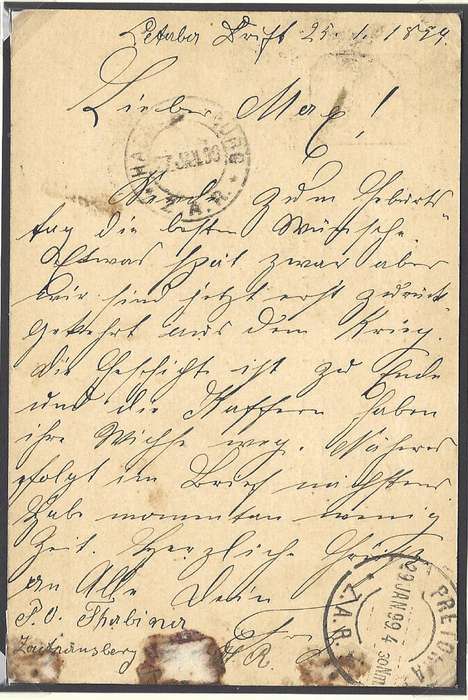 Letaba Drift 25. 1. 1899.
Lieber Max!
HAENERTSBURG
27 JAN 99
Z.A.R.
Noch zum Geburts
tag die besten Wünsche.
Etwas spät zwar aber
wir sind jetzt erst zurück
gekehrt aus dem Krieg.
Die Geschichte ist zu Ende
und die Kaffern haben
ihre Wichse weg. Näheres
folgt im Brief nächstens
Habe momentan wenig
Zeit. Herzliche Grüße
an Alle Dein
P.O. Thabina
Zoutpansberg
Z.A.R.
PRETORIA
29 JAN 99 4
Z.A.R.